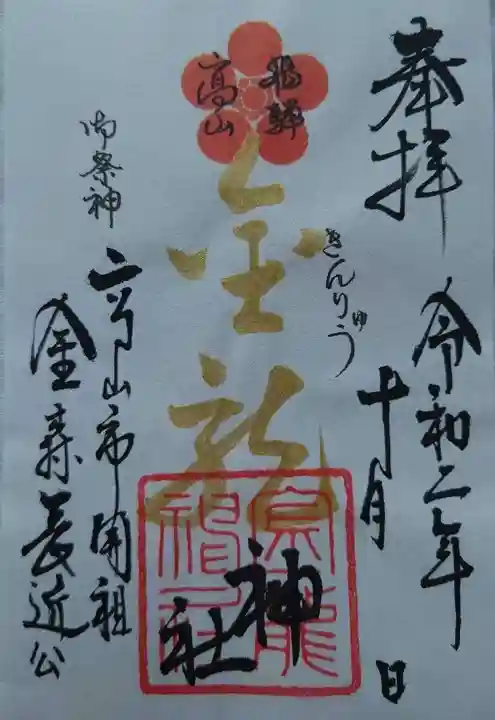 奉拝
令和二年
十月 日
飛騨
高山
金龍
きんりゅう
神社
御祭神
高山市開祖
金森長近公